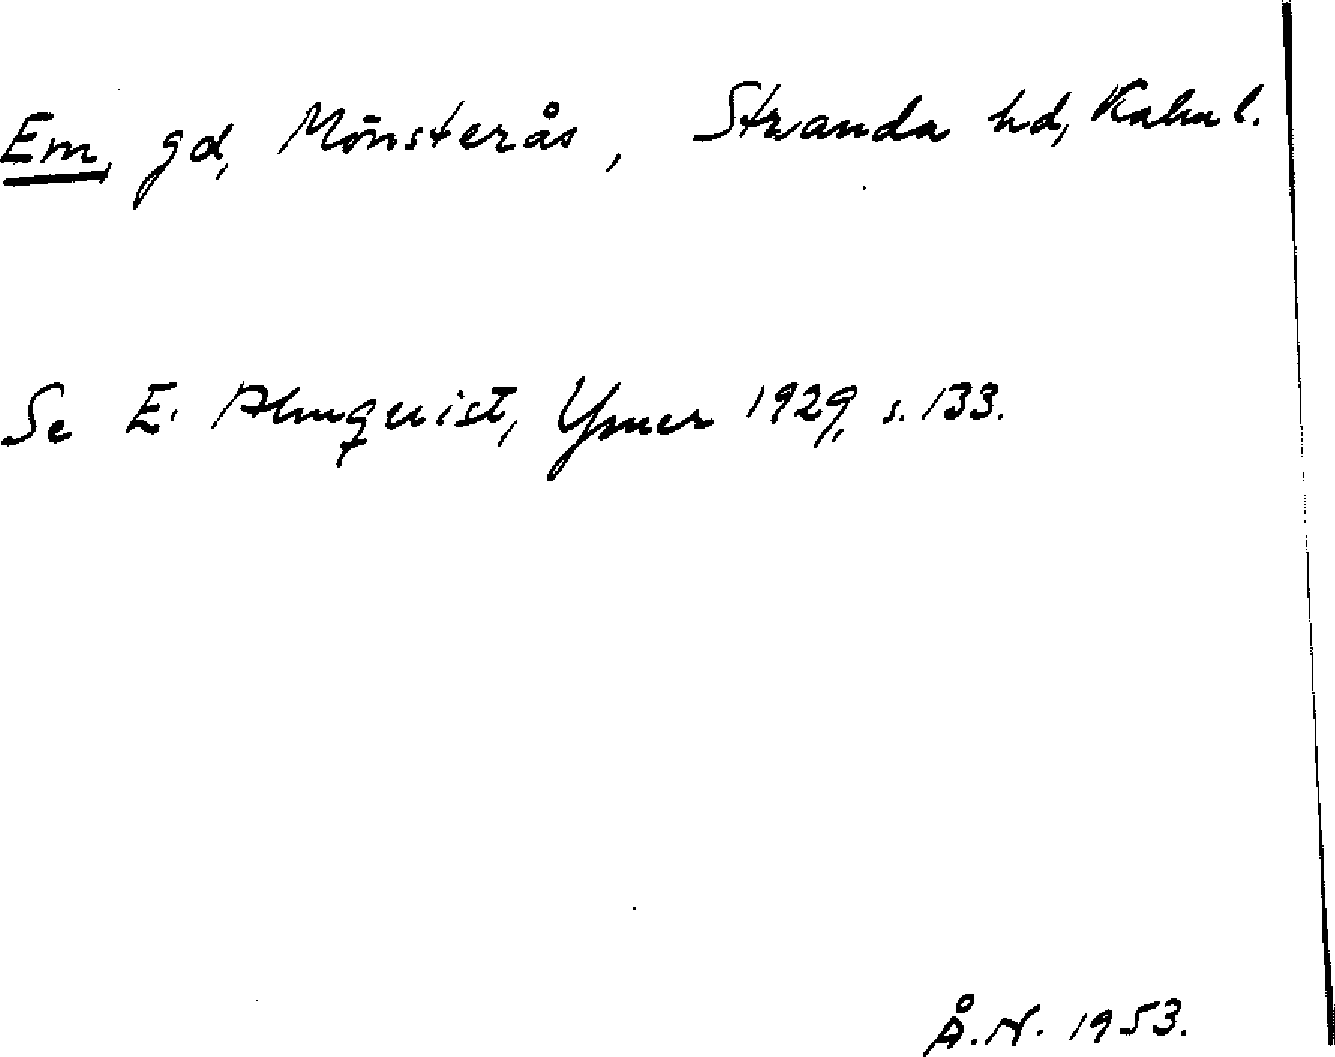 Em, gd, Mönsterås, Stranda hd, Kalm l.
Se E. Almquist, Ymer 1929, s. 133.
Å.N. 1953.